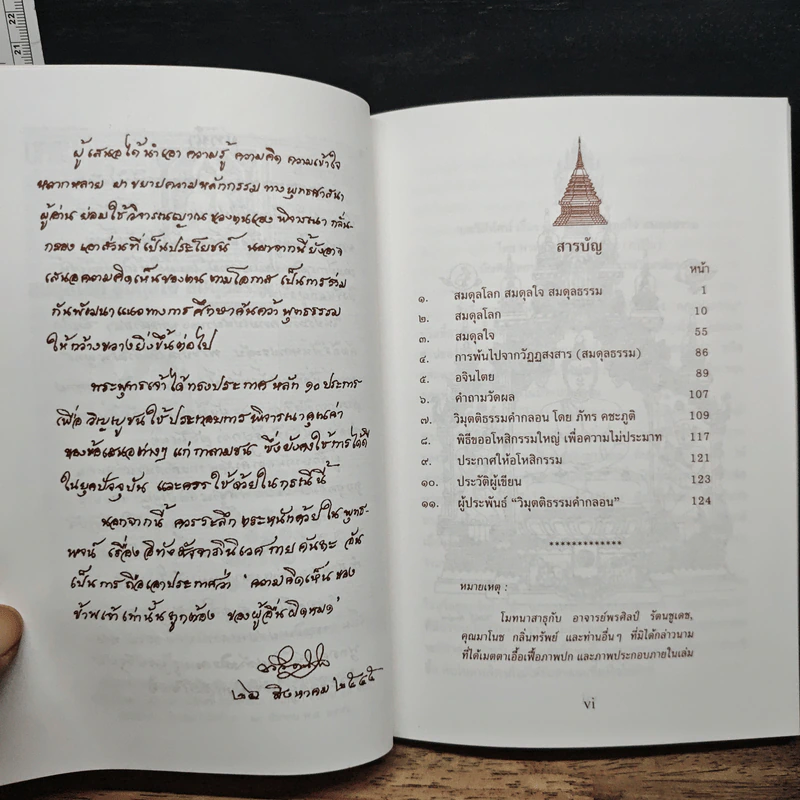 22
21
ผู้เสนอได้นำเอา ความรู้ ความคิด ความเข้าใจ
หลากหลาย มาขยายความหลักกรรม ทางพุทธศาสนา
ผู้อ่าน ย่อมใช้วิจารณญาณ ของตนเอง พิจารณา กลั่น-
กรอง เอาส่วนที่เป็นประโยชน์ นอกจากนี้ ยังอาจ
เสนอความคิดเห็นของตน ตามโอกาส เป็นการร่วม
กันพัฒนาแนวทางการศึกษาค้นคว้า พุทธธรรม
ให้กว้างขวางยิ่งขึ้นต่อไป
พระพุทธเจ้าได้ทรงประกาศหลัก ๑๐ ประการ
เพื่อ วิญญูชนใช้ประกอบการพิจารณาคุณค่า
ของข้อเสนอต่างๆ แก่ กาลามชน ซึ่งยังคงใช้การได้ดี
ในยุคปัจจุบัน และควรใช้ด้วยในกรณีนี้
นอกจากนี้ ควรระลึก ตระหนักด้วย ใน พุทธ-
พจน์ เรื่อง อิทังสัจจาภินิเวศ กายคันถะ อัน
เป็นการถือเอาประกาศว่า 'ความคิดเห็นของ
ข้าพเจ้าเท่านั้นถูกต้อง ของผู้อื่นผิดหมด'
สิงหาคม ๒๕๔๕
สารบัญ
หน้า
๑. สมดุลโลก สมดุลใจ สมดุลธรรม 1
๒. สมดุลโลก 10
๓. สมดุลใจ 55
๔. การพ้นไปจากวัฏฏสงสาร (สมดุลธรรม) 86
๕. อจินไตย 89
๖. คำถามวัดผล 107
๗. วิมุตติธรรมคำกลอน โดย ภัทร คชะภูติ 109
๘. พิธีขออโหสิกรรมใหญ่ เพื่อความไม่ประมาท 117
๙. ประกาศให้อโหสิกรรม 121
๑๐. ประวัติผู้เขียน 123
๑๑. ผู้ประพันธ์ "วิมุตติธรรมคำกลอน" 124
*************
หมายเหตุ :
โมทนาสาธุกับ อาจารย์พรศิลป์ รัตนชูเดช,
คุณมาโนช กลิ่นทรัพย์ และท่านอื่นๆ ที่มิได้กล่าวนาม
ที่ได้เมตตาเอื้อเฟื้อภาพปก และภาพประกอบภายในเล่ม
vi